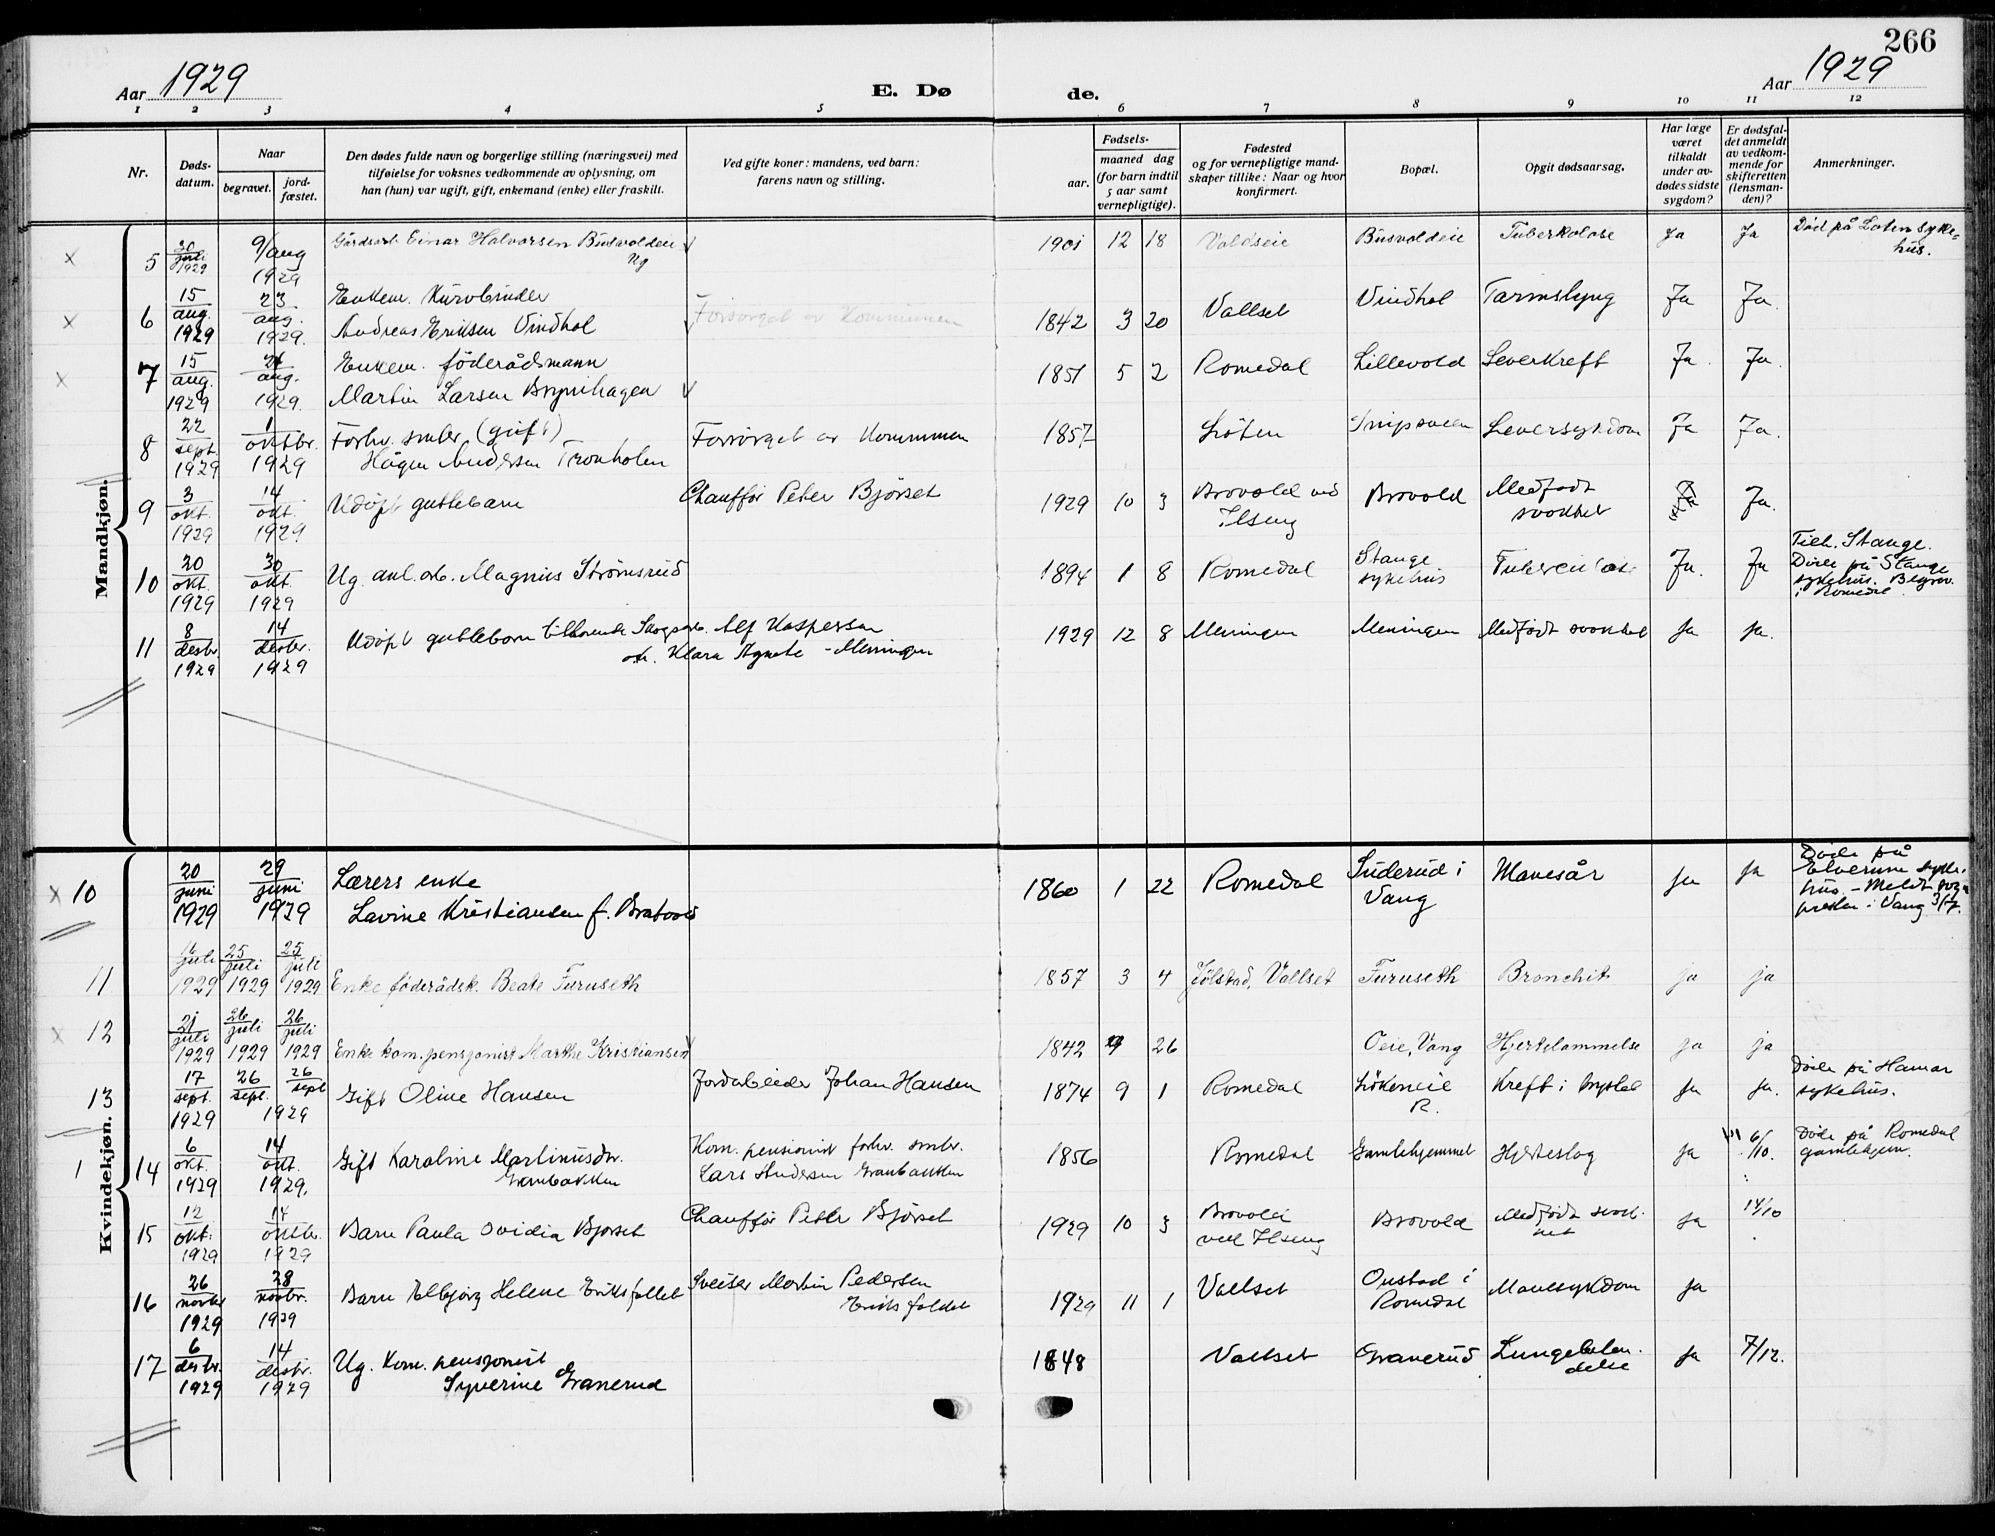 266
Aar 1929
E. Døde.
Aar 1929
1 2 3 4 5 6 7 8 9 10 11 12
Nr.
Døds-datum.
Naar
begravet.
jord-fæstet.
Den dødes fulde navn og borgerlige stilling (næringsvei) med
tilføielse for voksnes vedkommende av oplysning, om
han (hun) var ugift, gift, enkemand (enke) eller fraskilt.
Ved gifte koner: mandens, ved barn:
farens navn og stilling.
Fødsels-
aar.
maaned dag
(for barn indtil
5 aar samt
vernepligtige).
Fødested
og for vernepligtige mand-
skaper tillike: Naar og hvor
konfirmert.
Bopæl.
Opgit dødsaarsag.
Har læge
været
tilkaldt
under av-
dødes sidste
sygdom?
Er dødsfal-
det anmeldt
av vedkom-
mende for
skifteretten
(lensman-
den)?
Anmerkninger.
Mandkjøn.
5 30/juli 1929 9/aug 1929 Gårdsarb. Einar Halvorsen Busvoldeie Ug 1901 12 18 Voldseie Busvoldeie Tuberkolose Ja Ja Död på Löten syke=
hus.
6 15/aug. 1929 23/aug. 1929. Enkem. Kurvbinder
Andreas Eriksen Vindhol Forsörget av Kommunen 1842 3 20 Vallset Vindhol Tarmslyng Ja Ja.
7 15/aug. 1929 21/aug. 1929. Enkem. föderådsmann
Martin Larsen Brynhagen 1851 5 2 Romedal Lillevold Leverkreft Ja. Ja.
8 22/sept. 1929 1/oktbr. 1929 Forhv. smbr. (gift)
Hågen Andersen Tronholen Forsörget av Kommunen 1857 Löten Leversykdom Ja Ja.
9 3/okt. 1929 14/okt. 1929 Udöpt guttebarn Chaufför Peter Björset 1929 10 3 Brovold ved
Ilseng Brovold Medfödt
svakhet Ja.
10 20/okt. 1929 30/okt. 1929 Ug. anl. arb. Magnus Strömsrud 1894 1 8 Romedal Stange
sykehus Tuberkulose Ja. Ja Tilh. Stange.
Döde på Stange
sykehus. Begrav.
i Romedal.
11 8/desbr. 1929 14/desbr. 1929 Udöpt guttebarn tilhörende Skogsarb. Alf Kaspersen
o.h. Klara Agnete - Meningen 1929 12 8 Meningen Meningen Medfödt svakhet Ja Ja.
Kvindekjøn.
10 20/juni 1929 29/juni 1929 Lærers enke
Lavine Kristiansen f. Bratvold 1860 1 22 Romedal Suderud i
Vang Mavesår Ja Ja Döde på
Elverum syke-
hus. - Meldt sogne-
presten i Vang 3/7.
11 16/juli 1929 25/juli 1929 25/juli 1929 Enke föderådsk. Beate Furuseth 1857 3 4 Jölstad, Vallset Furuseth Bronchit ja ja
12 21/juli 1929 26/juli 1929 26/juli 1929 Enke kom. pensjonist Marthe Kristiansen 1842 9 26 Oeie, Vang Hjertelammelse ja ja
13 17/sept. 1929 26/sept. 26/sept 1929 Gift Oline Hansen Jordarbeider Johan Hansen 1874 9 1 Romedal Lökeneie
R. Kreft i brystet Ja Ja. Döde på Hamar
sykehus.
1 14 6/okt. 1929 14/okt. 1929. Gift Karoline Martinusdtr.
Granbakken Kom. pensionist forhv. smbr.
Lars Andersen Granbakken 1856 Romedal Gamlehjemmet Hjerteslag Ja 6/10. Döde på Romedal
gamlehjem.
15 12/okt. 1929 14/oktbr. 1929 Barn Paula Ovidia Björset Chaufför Peter Björset 1929 10 3 Brovold
ved Ilseng Brovold Medfödt svak-
het Ja 14/10
16 26/novbr 1929 28/novbr. 1929 Barn Helene Eriksfallet Sveiser Martin Pedersen
Eriksfaldet 1929 11 1 Vallset Oustad i
Romedal Mavesykdom Ja
17 6/desbr. 1929 14/desbr. 1929 Ug. Kom. pensjonist
Syverine Granerud 1848 Vallset Granerud Lungebeten-
delse Ja 7/12.